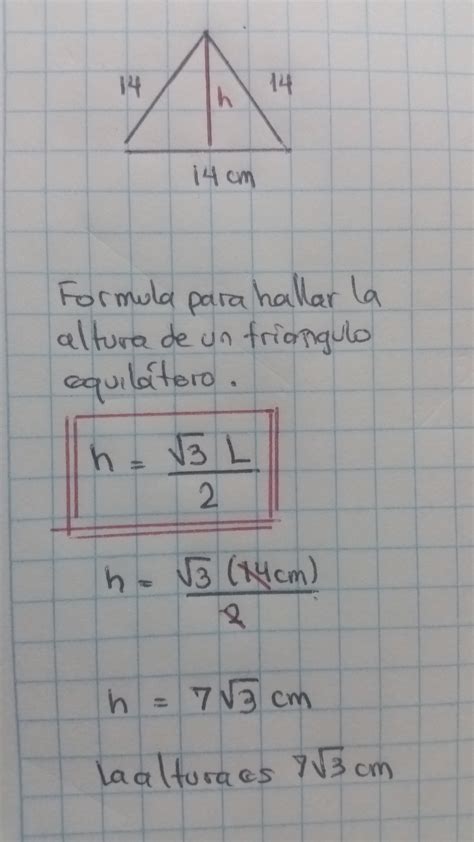 14 14
h
14 cm
Formula para hallar la
altura de un triangulo
equilátero.
h = √3 L / 2
h = √3 (14cm) / 2
h = 7√3 cm
la altura es 7√3 cm